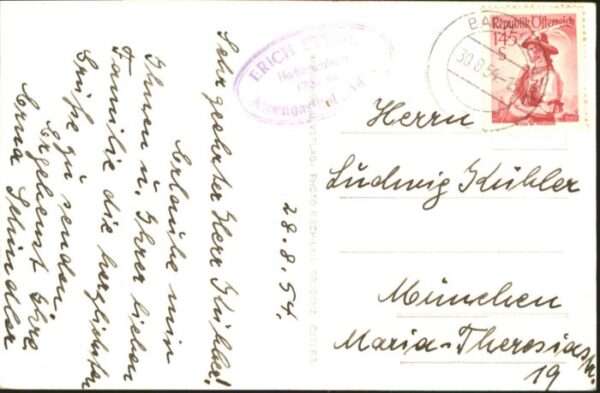 Sehr geehrter Herr Kühler!
Erlaube mir
Ihnen u. Ihrer lieben
Familie die herzlichsten
Grüße zu senden.
Ergebenst Ihre
Erna Schindler
28.8.54.
ERICH
Republik Österreich
1·45
S
BA
30.8.54
Herrn
Ludwig Kühler
München
Maria-Theresiastr.
19